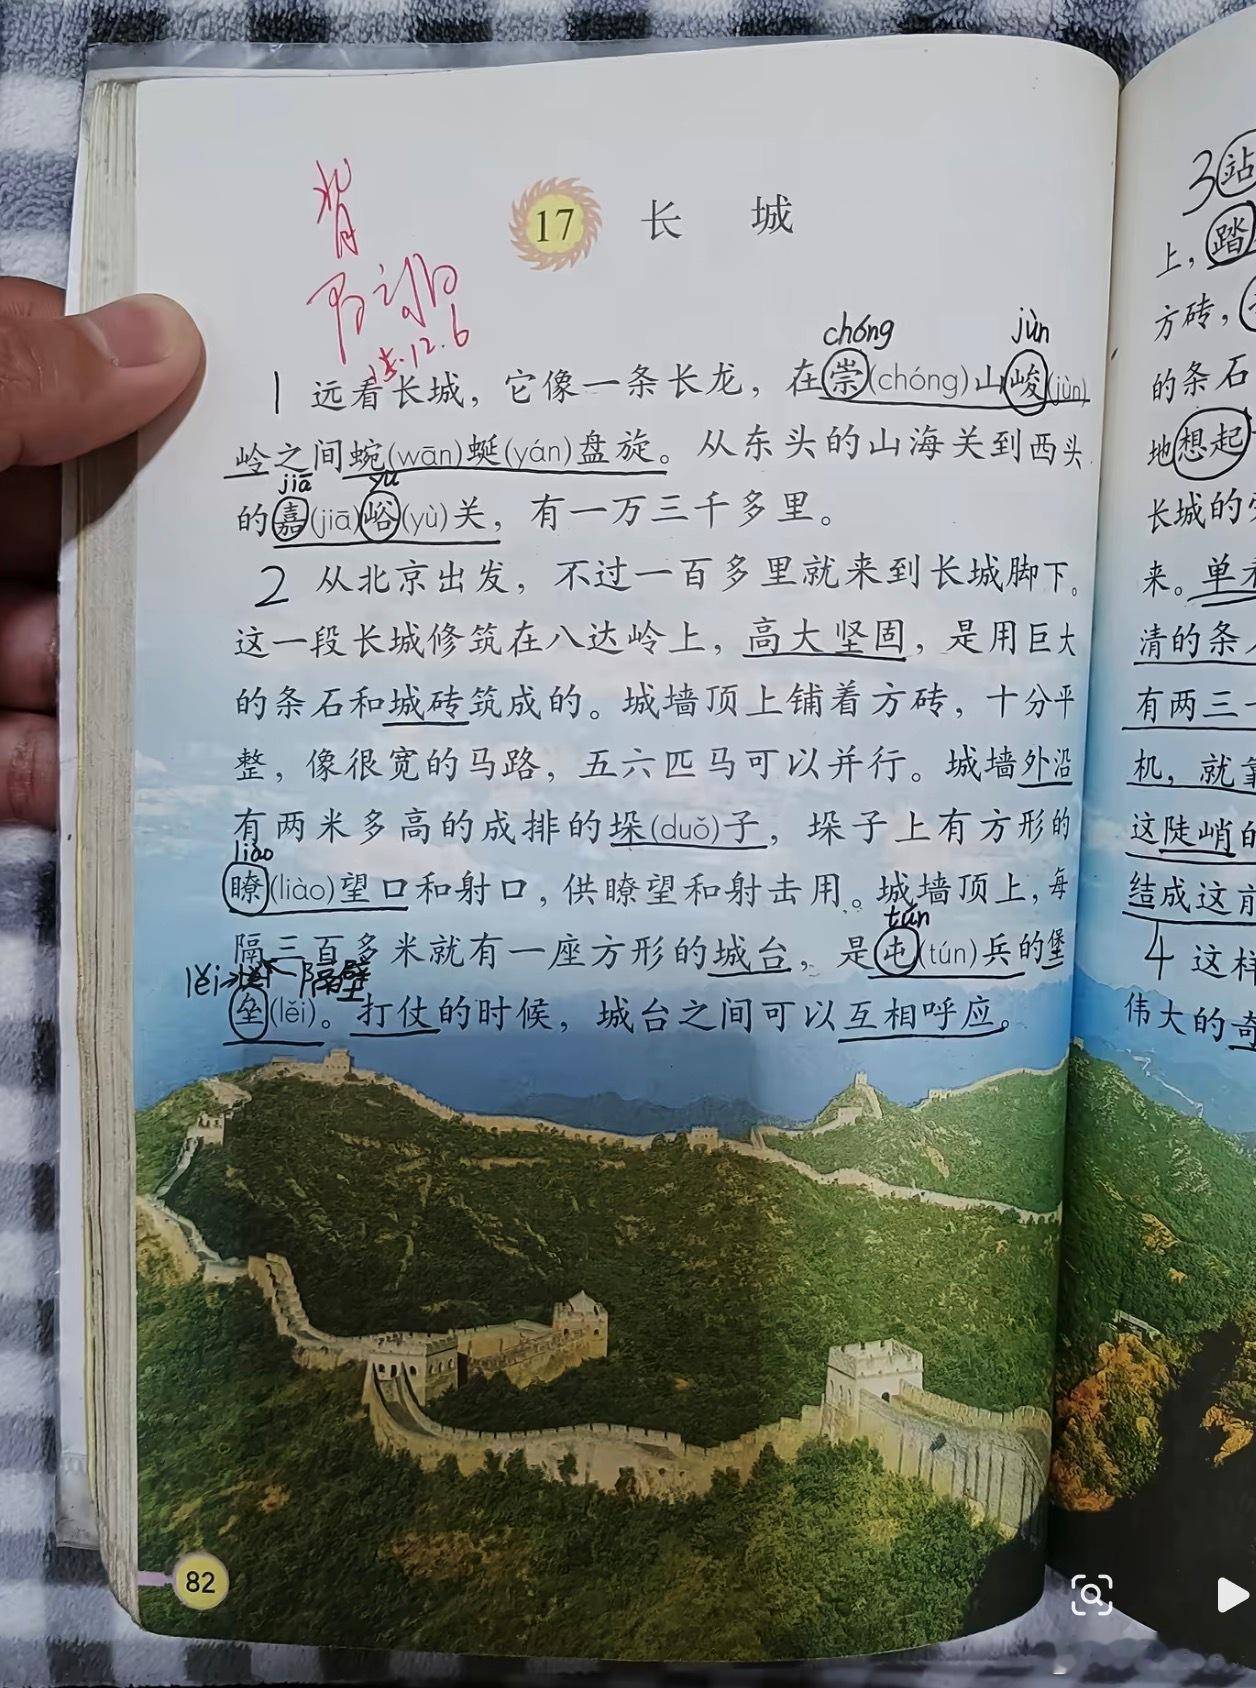 背
15.12.6
17 长城
chóng jùn
1 远看长城，它像一条长龙，在崇(chóng)山峻(jùn)
岭之间蜿(wān)蜒(yán)盘旋。从东头的山海关到西头
jiā yù
的嘉(jiā)峪(yù)关，有一万三千多里。
2 从北京出发，不过一百多里就来到长城脚下。
这一段长城修筑在八达岭上，高大坚固，是用巨大
的条石和城砖筑成的。城墙顶上铺着方砖，十分平
整，像很宽的马路，五六匹马可以并行。城墙外沿
有两米多高的成排的垛(duǒ)子，垛子上有方形的
liào
瞭(liào)望口和射口，供瞭望和射击用。城墙顶上，每
tún
隔三百多米就有一座方形的城台，是屯(tún)兵的堡
lěi 隔壁
垒(lěi)。打仗的时候，城台之间可以互相呼应。
82
3 站
上，踏
方砖，
的条石
地想起
长城的
来。单
清的条
有两三
机，就
这陡峭的
结成这前
4 这样
伟大的奇